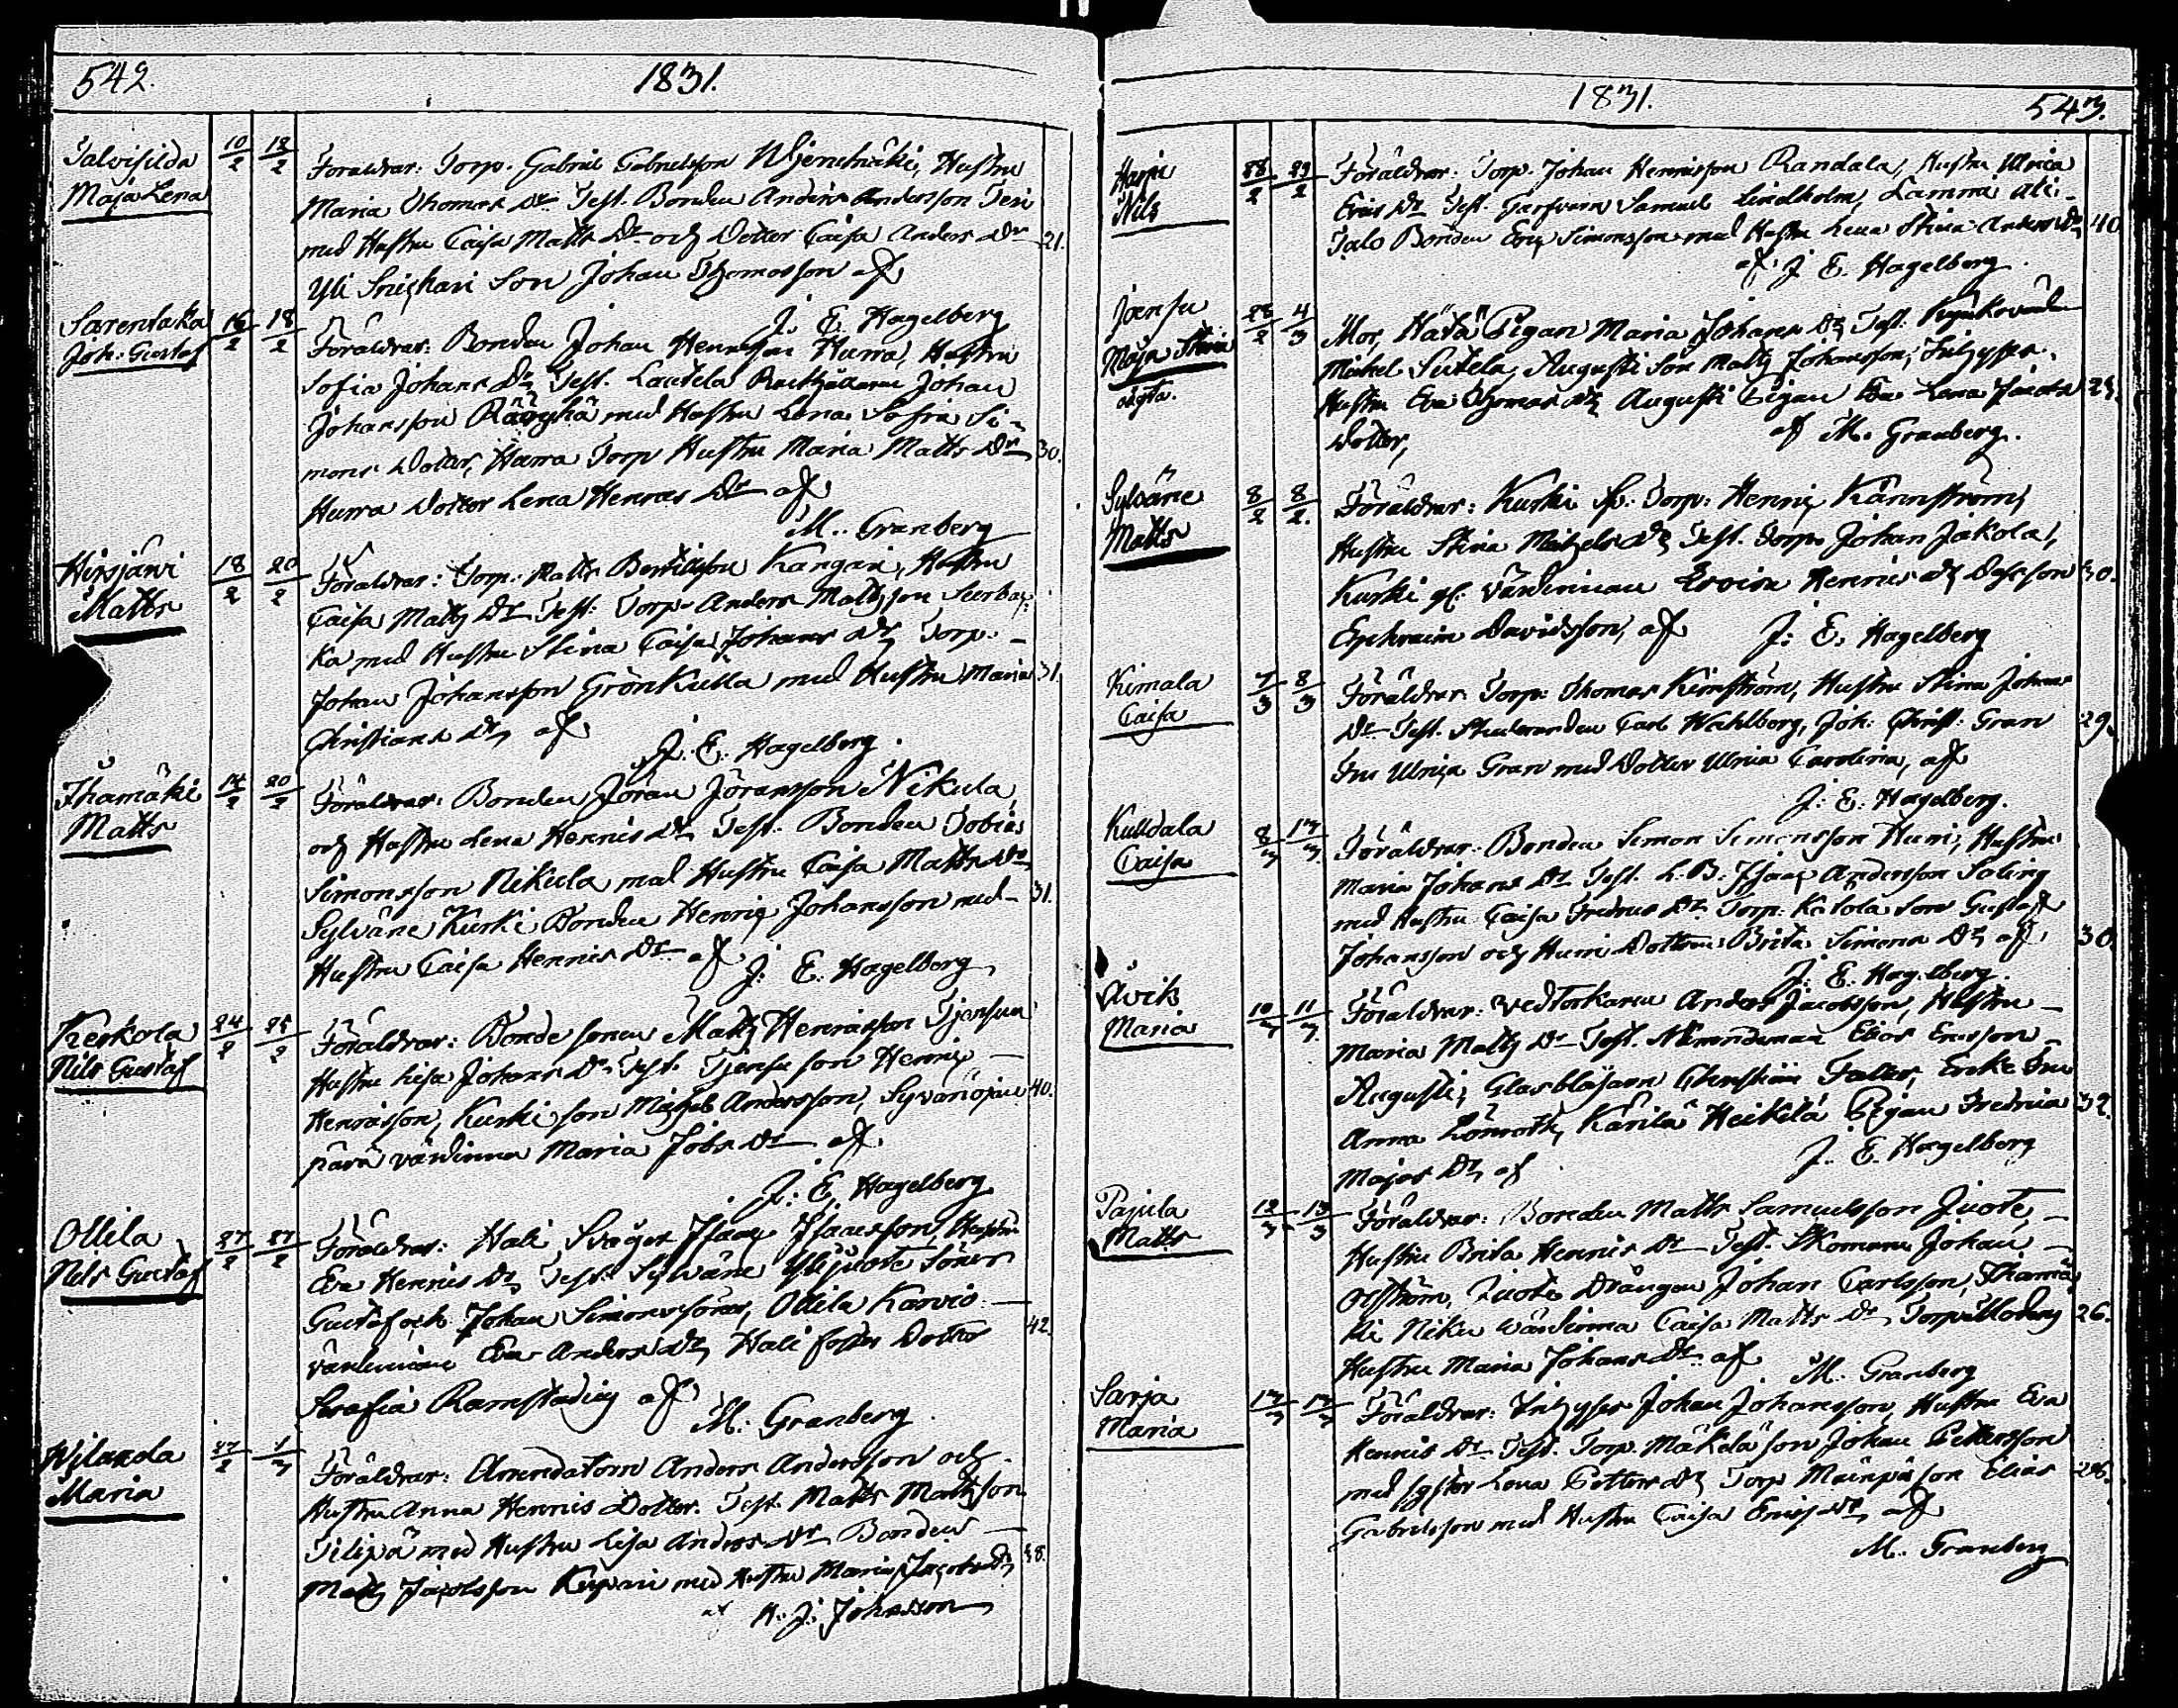 542. 1831.
Talvisilda 10/2 12/2 Föräldrar: Torp. Gabriel Gabrielsson, Hustru
Maja Lena Maria Thomas Dr Test. Bonden Anders Andersson
med Hustru Caisa Matts Dr och Dotter Caisa Anders Dr 21.
Yli Son Johan Thomasson af
J. E. Hagelberg
Sarentaka 16/2 18/2 Föräldrar: Bonden Johan Henriksson Hurra, Hustru
Joh: Gustaf Sofia Johans Dr Test. Lautela Johan
Johansson med Hustru Lena Sofia Si-
mons Dotter, Hurra Torp Hustru Maria Matts Dr 30.
Hurra Dotter Lena Henrics Dr af
M. Granberg
Hirsjärvi 18/2 20/2 Föräldrar: Torp. Matts Bertilsson Kangari, Hustru
Matts Caisa Matts Dr Test: Torp. Anders Mattsson
ka, med Hustru Stina Caisa Johans Dr Torp.
Johan Johansson Grönkulla med Hustru Maria 31.
Christians Dr af
J. E. Hagelberg.
Ihamäki 14/2 20/2 Föräldrar: Bonden Jöran Jöransson Nikula
Matts och Hustru Lena Henrics Dr Test. Bonden Tobias
Simonsson Nikula med Hustru Caisa Matts Dr
Sylväne Kurki Bonden Henric Johansson med 31.
Hustru Caisa Henrics Dr af J. E. Hagelberg
Kerkola 24/2 25/2 Föräldrar: Bonde sonen Matts Henricsson
Nils Gustaf Hustru Lisa Johans Dr Test. son Henric
Henricsson, Kurki son Michel Andersson, 40.
värdinna Maria Jobs Dr af
J. E. Hagelberg
Ollila 27/2 27/2 Föräldrar: Hali Svåger Isaac Isaacsson, Hustru
Nils Gustaf Eva Henrics Dr Test. Sylväne Ylijuote Söner
Gustaf och Johan Simonssöner, Ollila Karvio
värdinnan Eva Anders Dr, Hali foster Dotter 42.
Serafia Ramstadius af
M. Granberg
Maria 27/2 1/3 Föräldrar: Arrendatorn Anders Andersson och
Hustru Anna Henrics Dotter. Test. Matts Mattsson
Filipä med Hustru Lisa Anders Dr Bonden 38.
Matts Jacobsson med Hustru Maria Jacobs Dr
af H. J. Johnsson
1831. 543.
Harju 28/2 29/2 Föräldrar: Torp. Johan Henricsson Randala, Hustru Ulrica
Nils Erics Dr Test. Garfvaren Samuel Lindholm, Lamma Ali-
Talo Bonden Eric Simonsson med Hustru Lena Stina Anders Dr 40
af J. E. Hagelberg.
Joensu 28/2 4/3 Mor, Pigan Maria Johans Dr Test:
Maja Stina Michel Sutela, Augusti Son Matts Johansson,
oägta. Hustru Eva Thomas Dr Augusti Pigan Eva Lena Jacobs
Dotter, af M. Granberg.
Sylväne 8/2 8/2. Föräldrar: Kurki Torp: Henric Kännström,
Matts Hustru Stina Michels Dr Test. Torp. Johan Jakola,
Kurki värdinnan Lovisa Henrics Dr 30.
Ephraim Davidsson, af J: E. Hagelberg
Kimala 7/3 8/3 Föräldrar: Torp. Thomas Kimström, Hustru Stina Johans
Caisa Dr Test. Studeranden Carl Wahlberg, Joh: Christ: Gran 29.
Fru Ulrica Gran med Dotter Ulrica Carolina, af
J: E. Hagelberg.
Kulldala 8/3 13/3 Föräldrar: Bonden Simon Simonsson Huni, Hustru
Caisa Maria Johans Dr Test. L. B. Isaac Andersson Saling
med Hustru Caisa Fredrics Dr Torp. son Gustaf
Johansson och Huni Dottren Brita Simons Dr af 30.
J. E. Hagelberg.
Åvik 10/3 11/3 Föräldrar: Vedtorkaren Anders Jacobsson, Hustru
Maria Maria Matts Dr Test. Elias Ericsson
Augusti, Glasblåsaren Falter, Enke Fru
Anna Lönroth, Kärilä Heikilä Pigan Fredrica 32.
Majas Dr af J. E. Hagelberg
Pajula 12/3 13/3 Föräldrar: Bonden Matts Samuelsson Juote,
Matts Hustru Brita Henrics Dr Test. Skomakaren Johan
Juote Drängen Johan Carlsson, Ihamä-
ki Niku värdinna Caisa Matts Dr 26.
Hustru Maria Johans Dr af M. Granberg
Sarja 13/3 13/3 Föräldrar: Johan Johansson, Hustru Eva
Maria Henrics Dr Test. Torp. Mäkelä son Johan Pettersson
med syster Lena Petters Dr Torp Mäenpä son Elias 26.
Gabrielsson med Hustru Caisa Erics Dr af
M. Granberg